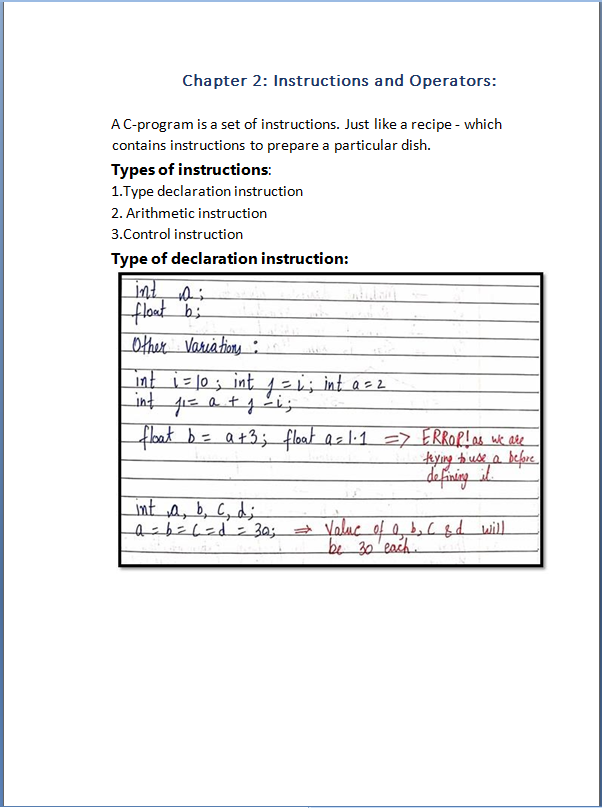 Chapter 2: Instructions and Operators:
A C-program is a set of instructions. Just like a recipe - which
contains instructions to prepare a particular dish.
Types of instructions:
1.Type declaration instruction
2. Arithmetic instruction
3.Control instruction
Type of declaration instruction:
int a;
float b;
Other Variations :
int i=10; int j=i; int a=2
int j1= a+j-i;
float b = a+3; float a=1.1 => ERROR! as we are
trying to use a before
defining it.
int a, b, c, d;
a=b=c=d = 30; => Value of a, b, c & d will
be 30 each.